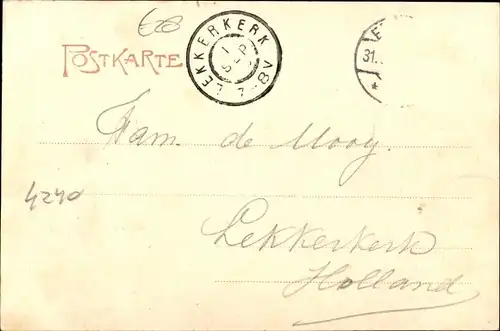 E28
POSTKARTE
LEKKERKERK
1
SEP
7-8V
31.
Fam. de Mooy.
4240
Lekkerkerk
Holland